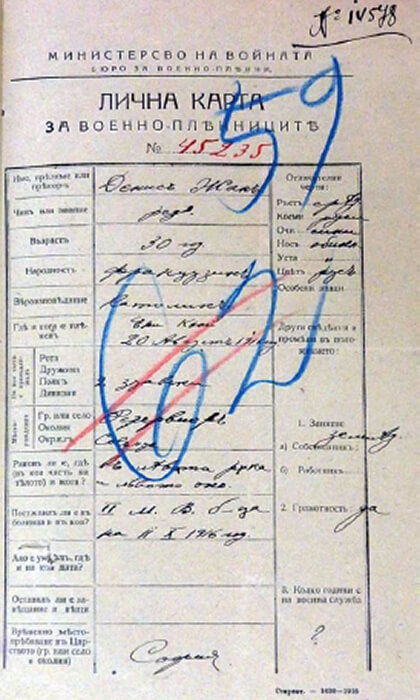 № 14578
МИНИСТЕРСТВО НА ВОЙНАТА
БЮРО ЗА ВОЕННО-ПЛѢННИ.
ЛИЧНА КАРТА
ЗА ВОЕННО-ПЛѢННИЦИТѢ
№ 45235
59
62
Име, презиме или прѣкоръ
Денисъ Жанъ
Чинъ или звание
ред.
Възрасть
30 год
Народность
французинъ
Вѣроизповѣдание
католикъ
Гдѣ и кога е плѣненъ
20 Августъ 1916
Рота
Дружина
Полкъ
Дивизия
Гр. или село
Околия
Окрѫгъ
Раненъ ли е, гдѣ
(въ коя часть на
тѣлото) и кога?
Въ лѣвата рѫка
и лѣвото око.
Постѫпилъ ли е въ
болница и въ коя?
II М. В. б-ца
на II X 1916 год.
Ако е умрѣлъ, гдѣ
и на коя дата?
Оставилъ ли е за-
вѣщание и вѣщи
Врѣменно мѣсто-
прѣбиване въ Цар-
ството (гр. или село
и околия)
София
Отличителни
черти:
Ръстъ срѣд.
Коси руси
Очи сини
Носъ обикн.
Уста "
Цвѣтъ русъ
Особени знаци
Други свѣдѣния и
промѣни въ поло-
жението:
1. Занятие
а) Собственикъ:
б) Работникъ
2. Грамотность: да
3. Колко години е
на военна служба
?